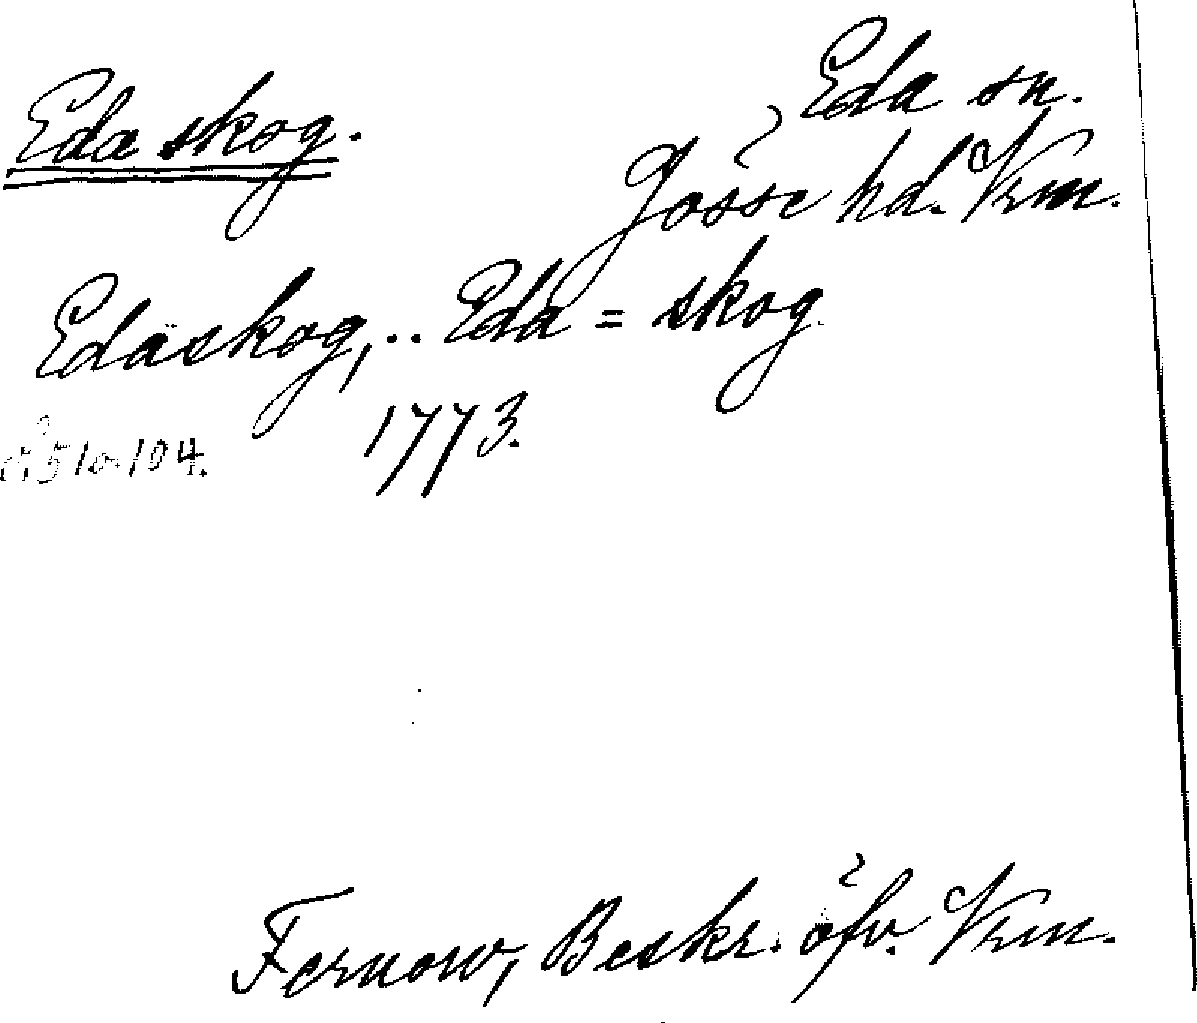 Eda skog.
Eda sn.
Jösse hd. Vrm.
Edaskog, .. Eda = skog
1773.
104.
Fernow, Beskr. öfv. Vrm.